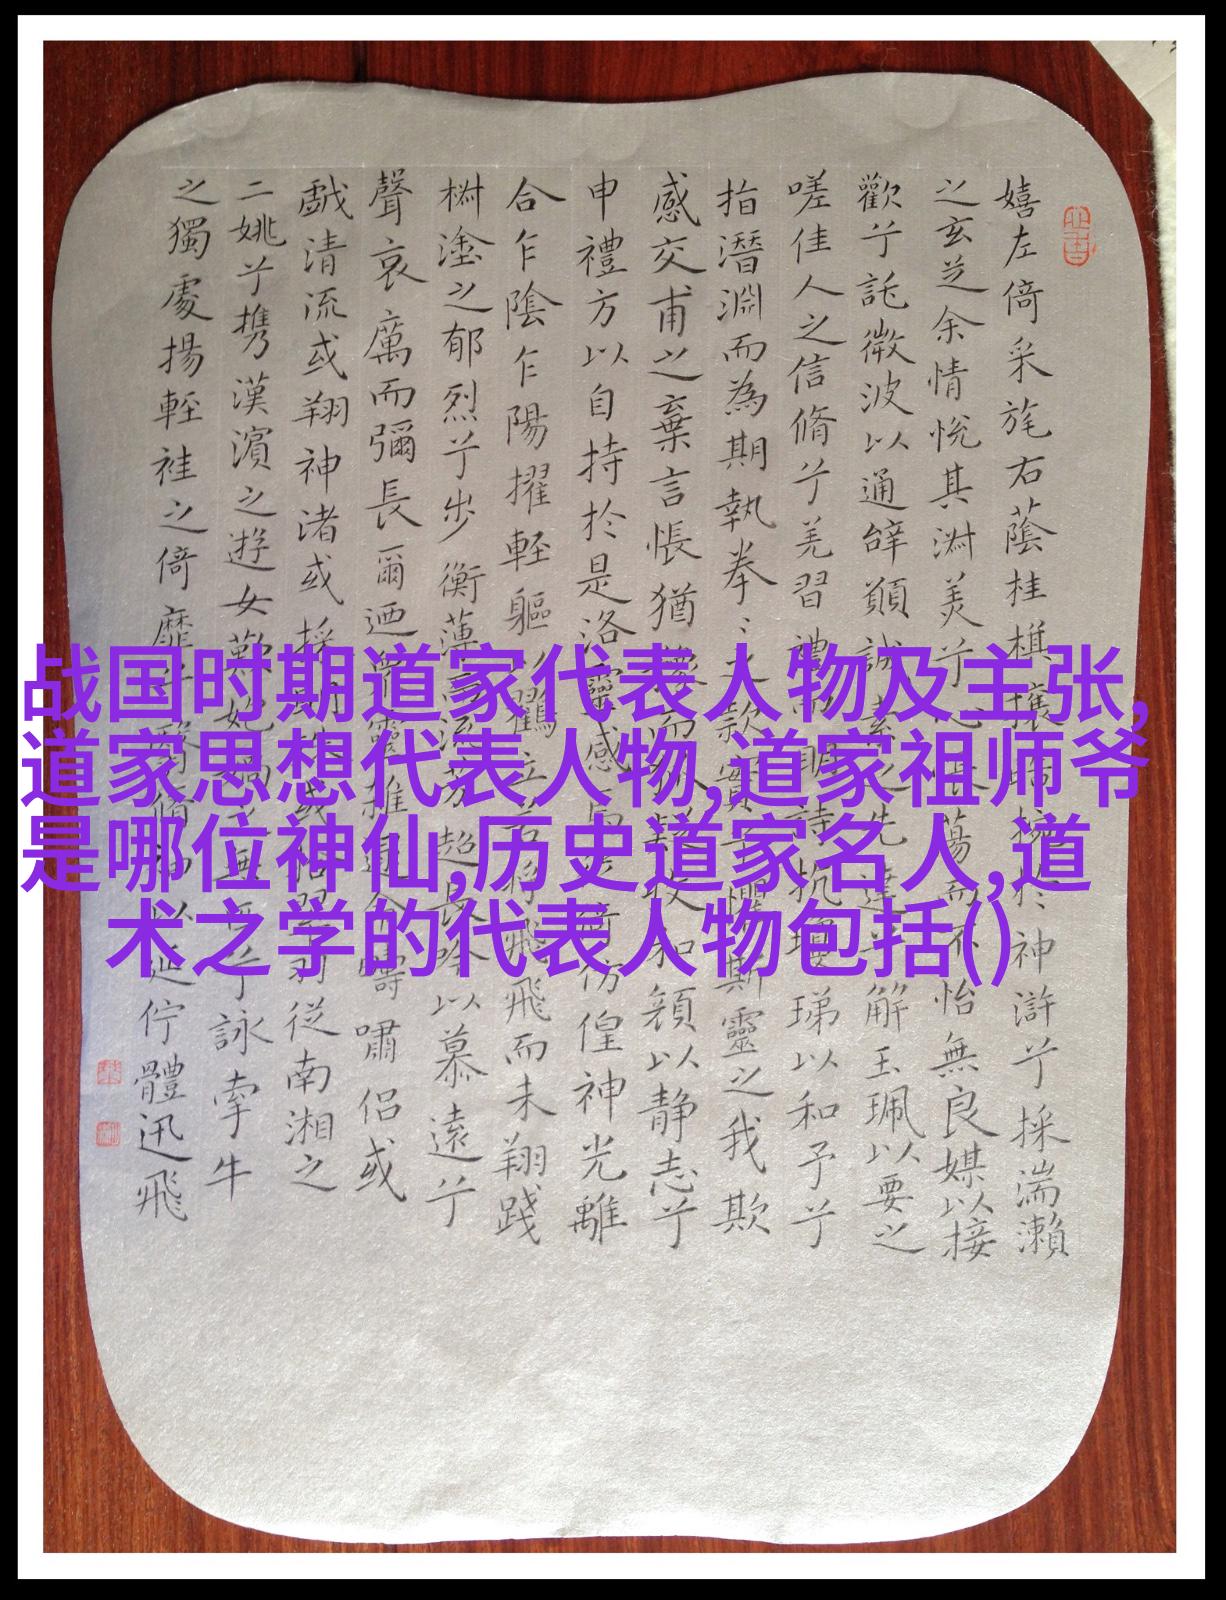 嬉左倚采旄右蔭桂棋攘神滸兮採湍瀨
之玄芝余情悅其淑美兮不怡無良媒以接
歡兮託微波以通辭願誠素之先達解玉珮以要之
嗟佳人之信脩兮羌習禮詩抗瓊珶以和予兮
指潛淵而為期執拳〻之款實斯靈之我欺
感交甫之棄言悵猶和顏以静志兮
申禮方以自持於是洛靈感彷徨神光離
合乍陰乍陽擢輕軀飛而未翔踐
樹塗之郁烈兮步衡薄流芳超長吟以慕遠兮
聲哀厲而彌長爾迺嘯侶或
戲清流或翔神渚或採從南湘之
二姚兮攜漢濱之遊女歎兮詠牽牛
之獨處揚輕袿之倚靡延佇體迅飛
战国时期道家代表人物及主张,
道家思想代表人物,道家祖师爷
是哪位神仙,历史道家名人,道
术之学的代表人物包括()